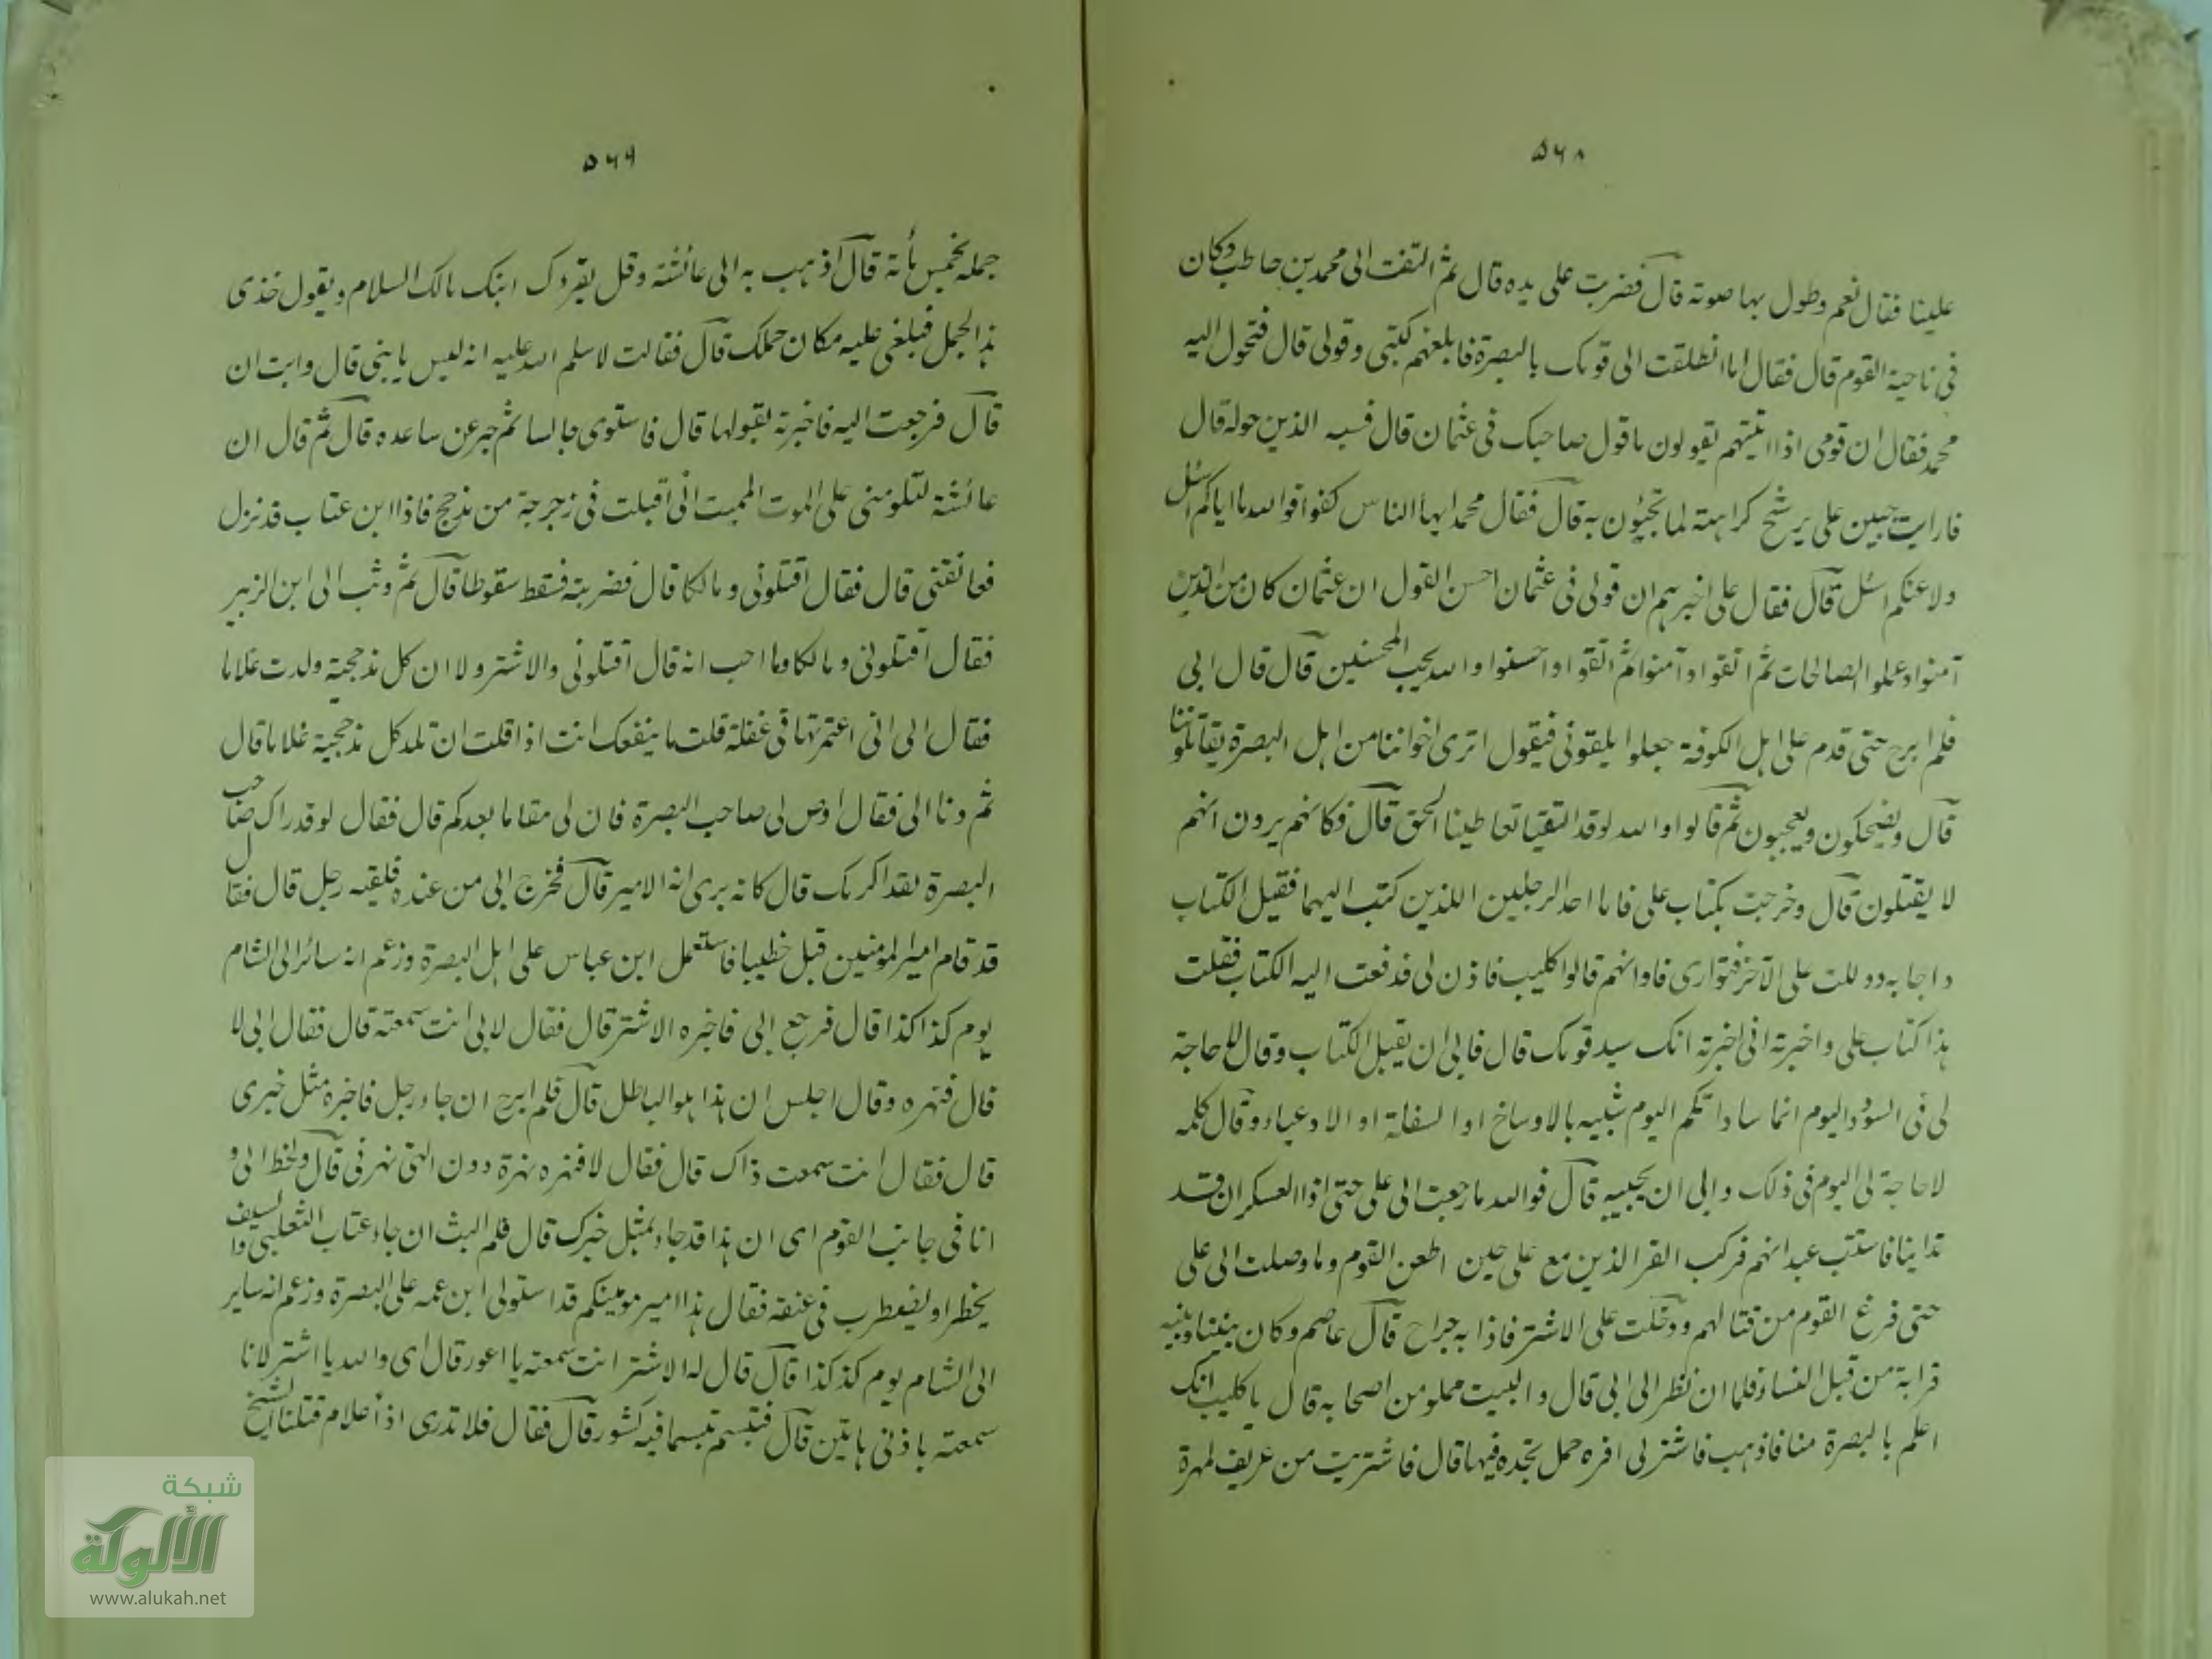 ۵۶۸
علينا فقال نعم وطول بها صوته قال فضربت على يده قال ثم التفت الى محمد بن حاطب وكان
فى ناحية القوم قال فقال اما انطلقت الى قومك بالبصرة فابلغهم كتبى وقولى قال فتحول اليه
محمد فقال ان قومى اذا اتيتهم يقولون ما قول صاحبك فى عثمان قال فسبه الذين حوله قال
فارايت جبين على يرشح كراهته لما تجيئون به قال فقال محمد ايها الناس كفوا فوالله ما اياكم اسئل
ولا عنكم اسئل قال فقال على اخبرهم ان قولى فى عثمان احسن القول ان عثمان كان من الذين
آمنوا وعملوا الصالحات ثم اتقوا وآمنوا ثم اتقوا واحسنوا والله يحب المحسنين قال قال ابى
فلم ابرح حتى قدم على اهل الكوفة جعلوا يلقونى فيقول اترى اخواننا من اهل البصرة يقاتلوننا
قال ويضحكون ويعجبون ثم قالوا والله لو قد التقينا تعاطينا الحق قال فكانهم يرون انهم
لا يقتلون قال وخرجت بكتاب على فاما احد الرجلين اللذين كتب اليهما فقيل الكتاب
واجابه ودللت على الآخر فتوارى فلو انهم قالوا كليب فاذن لى فدفعت اليه الكتاب فقلت
هذا كتاب على واخبرته انى اخبرته انك سيد قومك قال فابى ان يقبل الكتاب وقال لا حاجة
لى فى السؤدد اليوم انما ساداتكم اليوم شبيه بالاوساخ او السفلة او الادعياء وقال كلمه
لا حاجة لى اليوم فى ذلك وابى ان يجيبه قال فوالله ما رجعت الى على حتى اذا العسكران قد
تدانينا فاستتب عبدانهم فركب القرا الذين مع على حين اطعن القوم وما وصلت الى على
حتى فرغ القوم من قتالهم ودخلت على الاشتر فاذا به جراح قال عاصم وكان بيننا وبينه
قرابة من قبل النساء فلما ان نظر الى ابى قال والبيت مملو من اصحابه قال يا كليب انك
اعلم بالبصرة منا فاذهب فاشتر لى افره جمل تجده فيها قال فاشتريت من عريف لمهرة
۵۶۹
جمله بخمس مأته قال اذهب به الى عائشة وقل يقروك ابنك مالك السلام ويقول خذى
هذا الجمل فتبلغى عليه مكان جملك قال فقالت لا سلم الله عليه انه ليس يا بنى قال وابت ان
قال فرجعت اليه فاخبرته بقولها قال فاستوى جالسا ثم حبر عن ساعده قال ثم قال ان
عائشة لتلومنى على الموت المميت انى اقبلت فى زجرجة من مذحج فاذا ابن عتاب قد نزل
فعانقنى قال فقال اقتلونى ومالكا قال فضربته فسقط سقوطا قال ثم وثب الى ابن الزبير
فقال اقتلونى ومالكا وما احب انه قال اقتلونى والاشتر ولا ان كل مذحجية ولدت غلاما
فقال ابى انى اعتمرتها فى غفلة قلت ما ينفعك انت اذا قلت ان تلد كل مذحجية غلاما قال
ثم دنا ابى فقال اوص لى صاحب البصرة فان لى مقاما بعدكم قال فقال لو قد راك صاحب
البصرة لقد اكرمك قال كانه يرى انه الامير قال فخرج ابى من عنده فلقيه رجل قال فقال
قد قام امير المؤمنين قبل خطيبا فاستعمل ابن عباس على اهل البصرة وزعم انه سائر الى الشام
يوم كذا كذا قال فرجع ابى فاخبره الاشتر قال فقال لابى انت سمعته قال فقال ابى لا
قال فنهره وقال اجلس ان هذا هو الباطل قال فلم ابرح ان جاء رجل فاخبره مثل خبرى
قال فقال انت سمعت ذاك قال فقال لا فنهره نهرة دون التى نهرنى قال ولحظ الى و
انا فى جانب القوم اى ان هذا قد جاء بمثل خبرك قال فلم البث ان جاء عتاب الثعلبى والسيف
يخطر او يضطرب فى عنقه فقال هذا امير مومنيكم قد استولى ابن عمه على البصرة وزعم انه ساير
الى الشام يوم كذ كذا قال قال له الاشتر انت سمعته يا اعور قال اى والله يا اشتر لانا
سمعته باذنى هاتين قال فتبسم تبسما فيه كشور قال فقال فلا ندرى اذا علام قتلنا الشيخ
شبكة
الألوكة
www.alukah.net